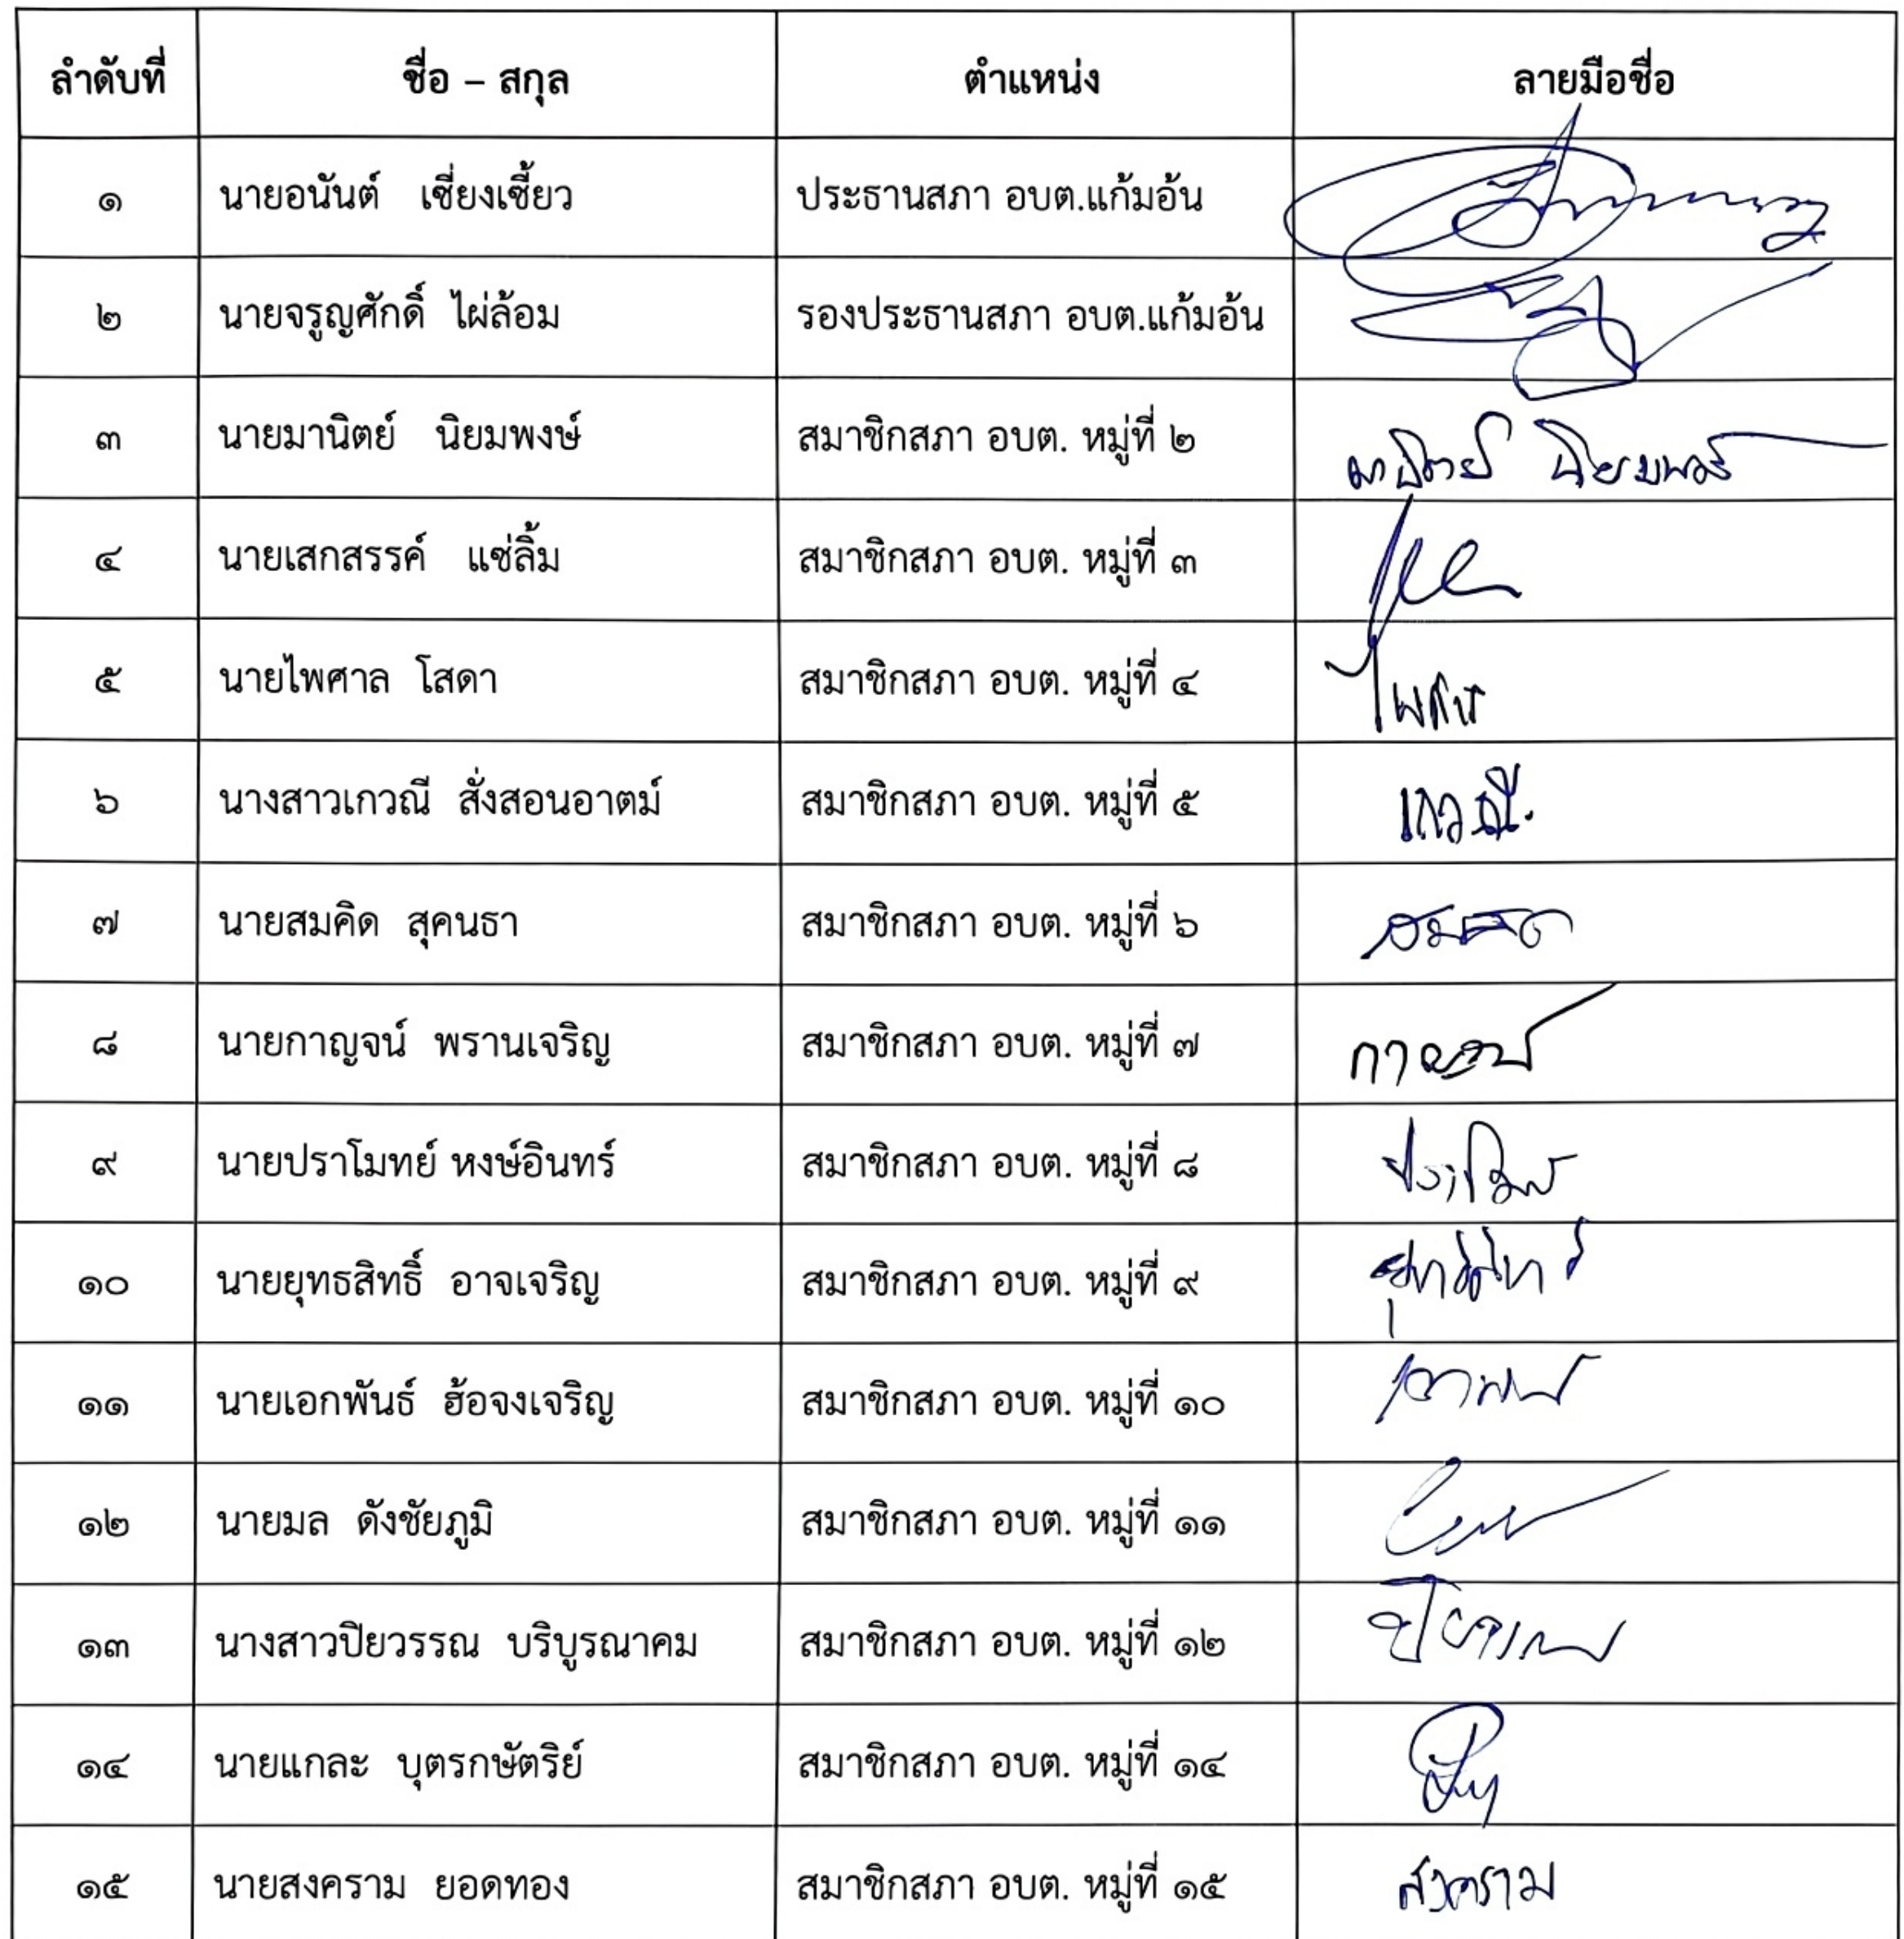 ลำดับที่ ชื่อ – สกุล ตำแหน่ง ลายมือชื่อ
๑ นายอนันต์ เซี่ยงเซี้ยว ประธานสภา อบต.แก้มอ้น
๒ นายจรูญศักดิ์ ไผ่ล้อม รองประธานสภา อบต.แก้มอ้น
๓ นายมานิตย์ นิยมพงษ์ สมาชิกสภา อบต. หมู่ที่ ๒ มานิตย์ นิยมพงษ์
๔ นายเสกสรรค์ แซ่ลิ้ม สมาชิกสภา อบต. หมู่ที่ ๓
๕ นายไพศาล โสดา สมาชิกสภา อบต. หมู่ที่ ๔ ไพศาล
๖ นางสาวเกวณี สั่งสอนอาตม์ สมาชิกสภา อบต. หมู่ที่ ๕ เกวณี
๗ นายสมคิด สุคนธา สมาชิกสภา อบต. หมู่ที่ ๖ สมคิด
๘ นายกาญจน์ พรานเจริญ สมาชิกสภา อบต. หมู่ที่ ๗ กาญจน์
๙ นายปราโมทย์ หงษ์อินทร์ สมาชิกสภา อบต. หมู่ที่ ๘ ปราโมทย์
๑๐ นายยุทธสิทธิ์ อาจเจริญ สมาชิกสภา อบต. หมู่ที่ ๙ ยุทธสิทธิ์
๑๑ นายเอกพันธ์ ฮ้อจงเจริญ สมาชิกสภา อบต. หมู่ที่ ๑๐
๑๒ นายมล ดังชัยภูมิ สมาชิกสภา อบต. หมู่ที่ ๑๑
๑๓ นางสาวปิยวรรณ บริบูรณาคม สมาชิกสภา อบต. หมู่ที่ ๑๒ ปิยวรรณ
๑๔ นายแกละ บุตรกษัตริย์ สมาชิกสภา อบต. หมู่ที่ ๑๔
๑๕ นายสงคราม ยอดทอง สมาชิกสภา อบต. หมู่ที่ ๑๕ สงคราม